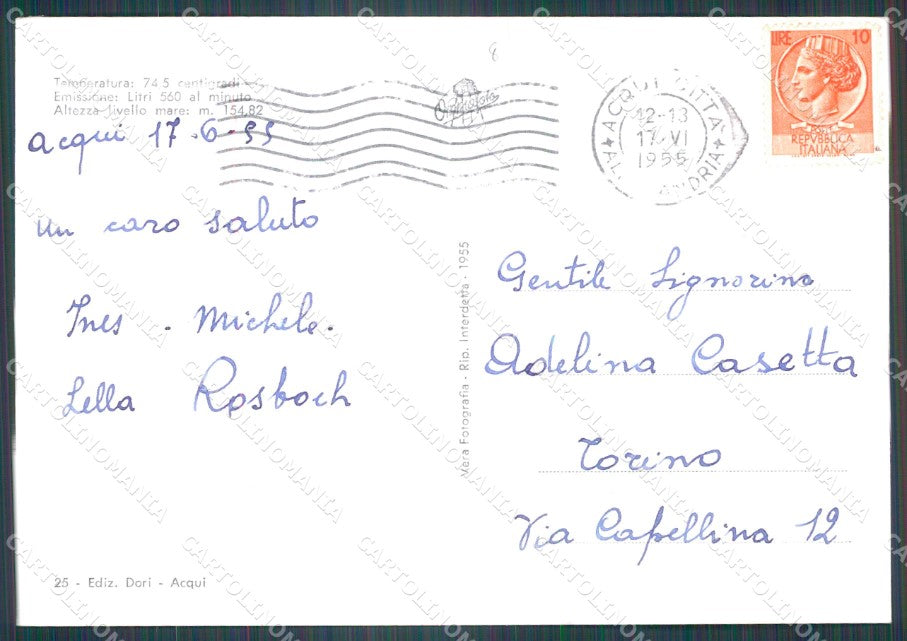 Temperatura: 74.5 centigradi
Emissione: Litri 560 al minuto
Altezza livello mare: m. 154,82
Acqui 17-6-55
un caro saluto
Ines - Michele -
Lella Rosboch
25 - Ediz. Dori - Acqui
Vera Fotografia - Rip. Interdetta - 1955
8
ACQUI CITTA
12-13
17 VI
1955
LIRE 10
REPVBBLICA
ITALIANA
Gentile Signorina
Adelina Casetta
Torino
Via Capellina 12
CARTOLINOMANIA